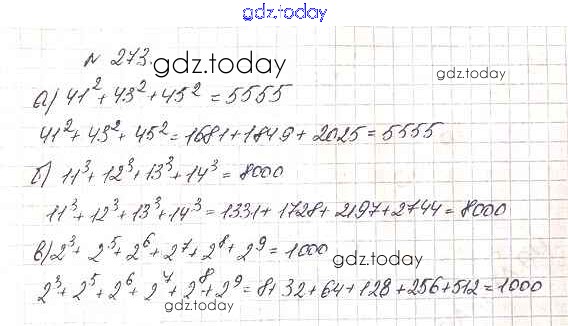 gdz.today
№ 273.
gdz.today
gdz.today
а) 41² + 43² + 45² = 5555
41² + 43² + 45² = 1681 + 1849 + 2025 = 5555
б) 11³ + 12³ + 13³ + 14³ = 8000
11³ + 12³ + 13³ + 14³ = 1331 + 1728 + 2197 + 2744 = 8000
в) 2³ + 2⁵ + 2⁶ + 2⁷ + 2⁸ + 2⁹ = 1000
gdz.today
2³ + 2⁵ + 2⁶ + 2⁷ + 2⁸ + 2⁹ = 8 + 32 + 64 + 128 + 256 + 512 = 1000
gdz.today